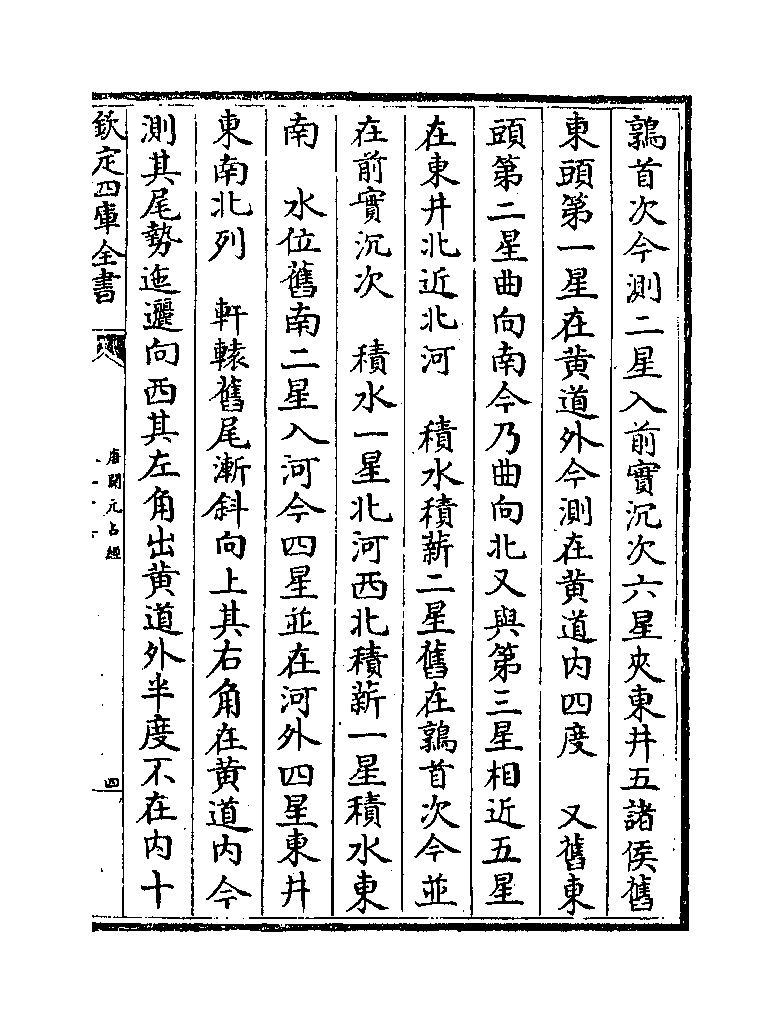 鶉首次今測二星入前實沉次六星夾東井五諸侯舊
東頭第一星在黄道外今測在黄道内四度　又舊東
頭第二星曲向南今乃曲向北又與第三星相近五星
在東井北近北河　積水積薪二星舊在鶉首次今並
在前實沉次　積水一星北河西北積薪一星積水東
南　水位舊南二星入河今四星並在河外四星東井
東南北列　軒轅舊尾漸斜向上其右角在黄道内今
測其尾勢迤邐向西其左角出黄道外半度不在内十
欽定四庫全書
唐開元占經
四